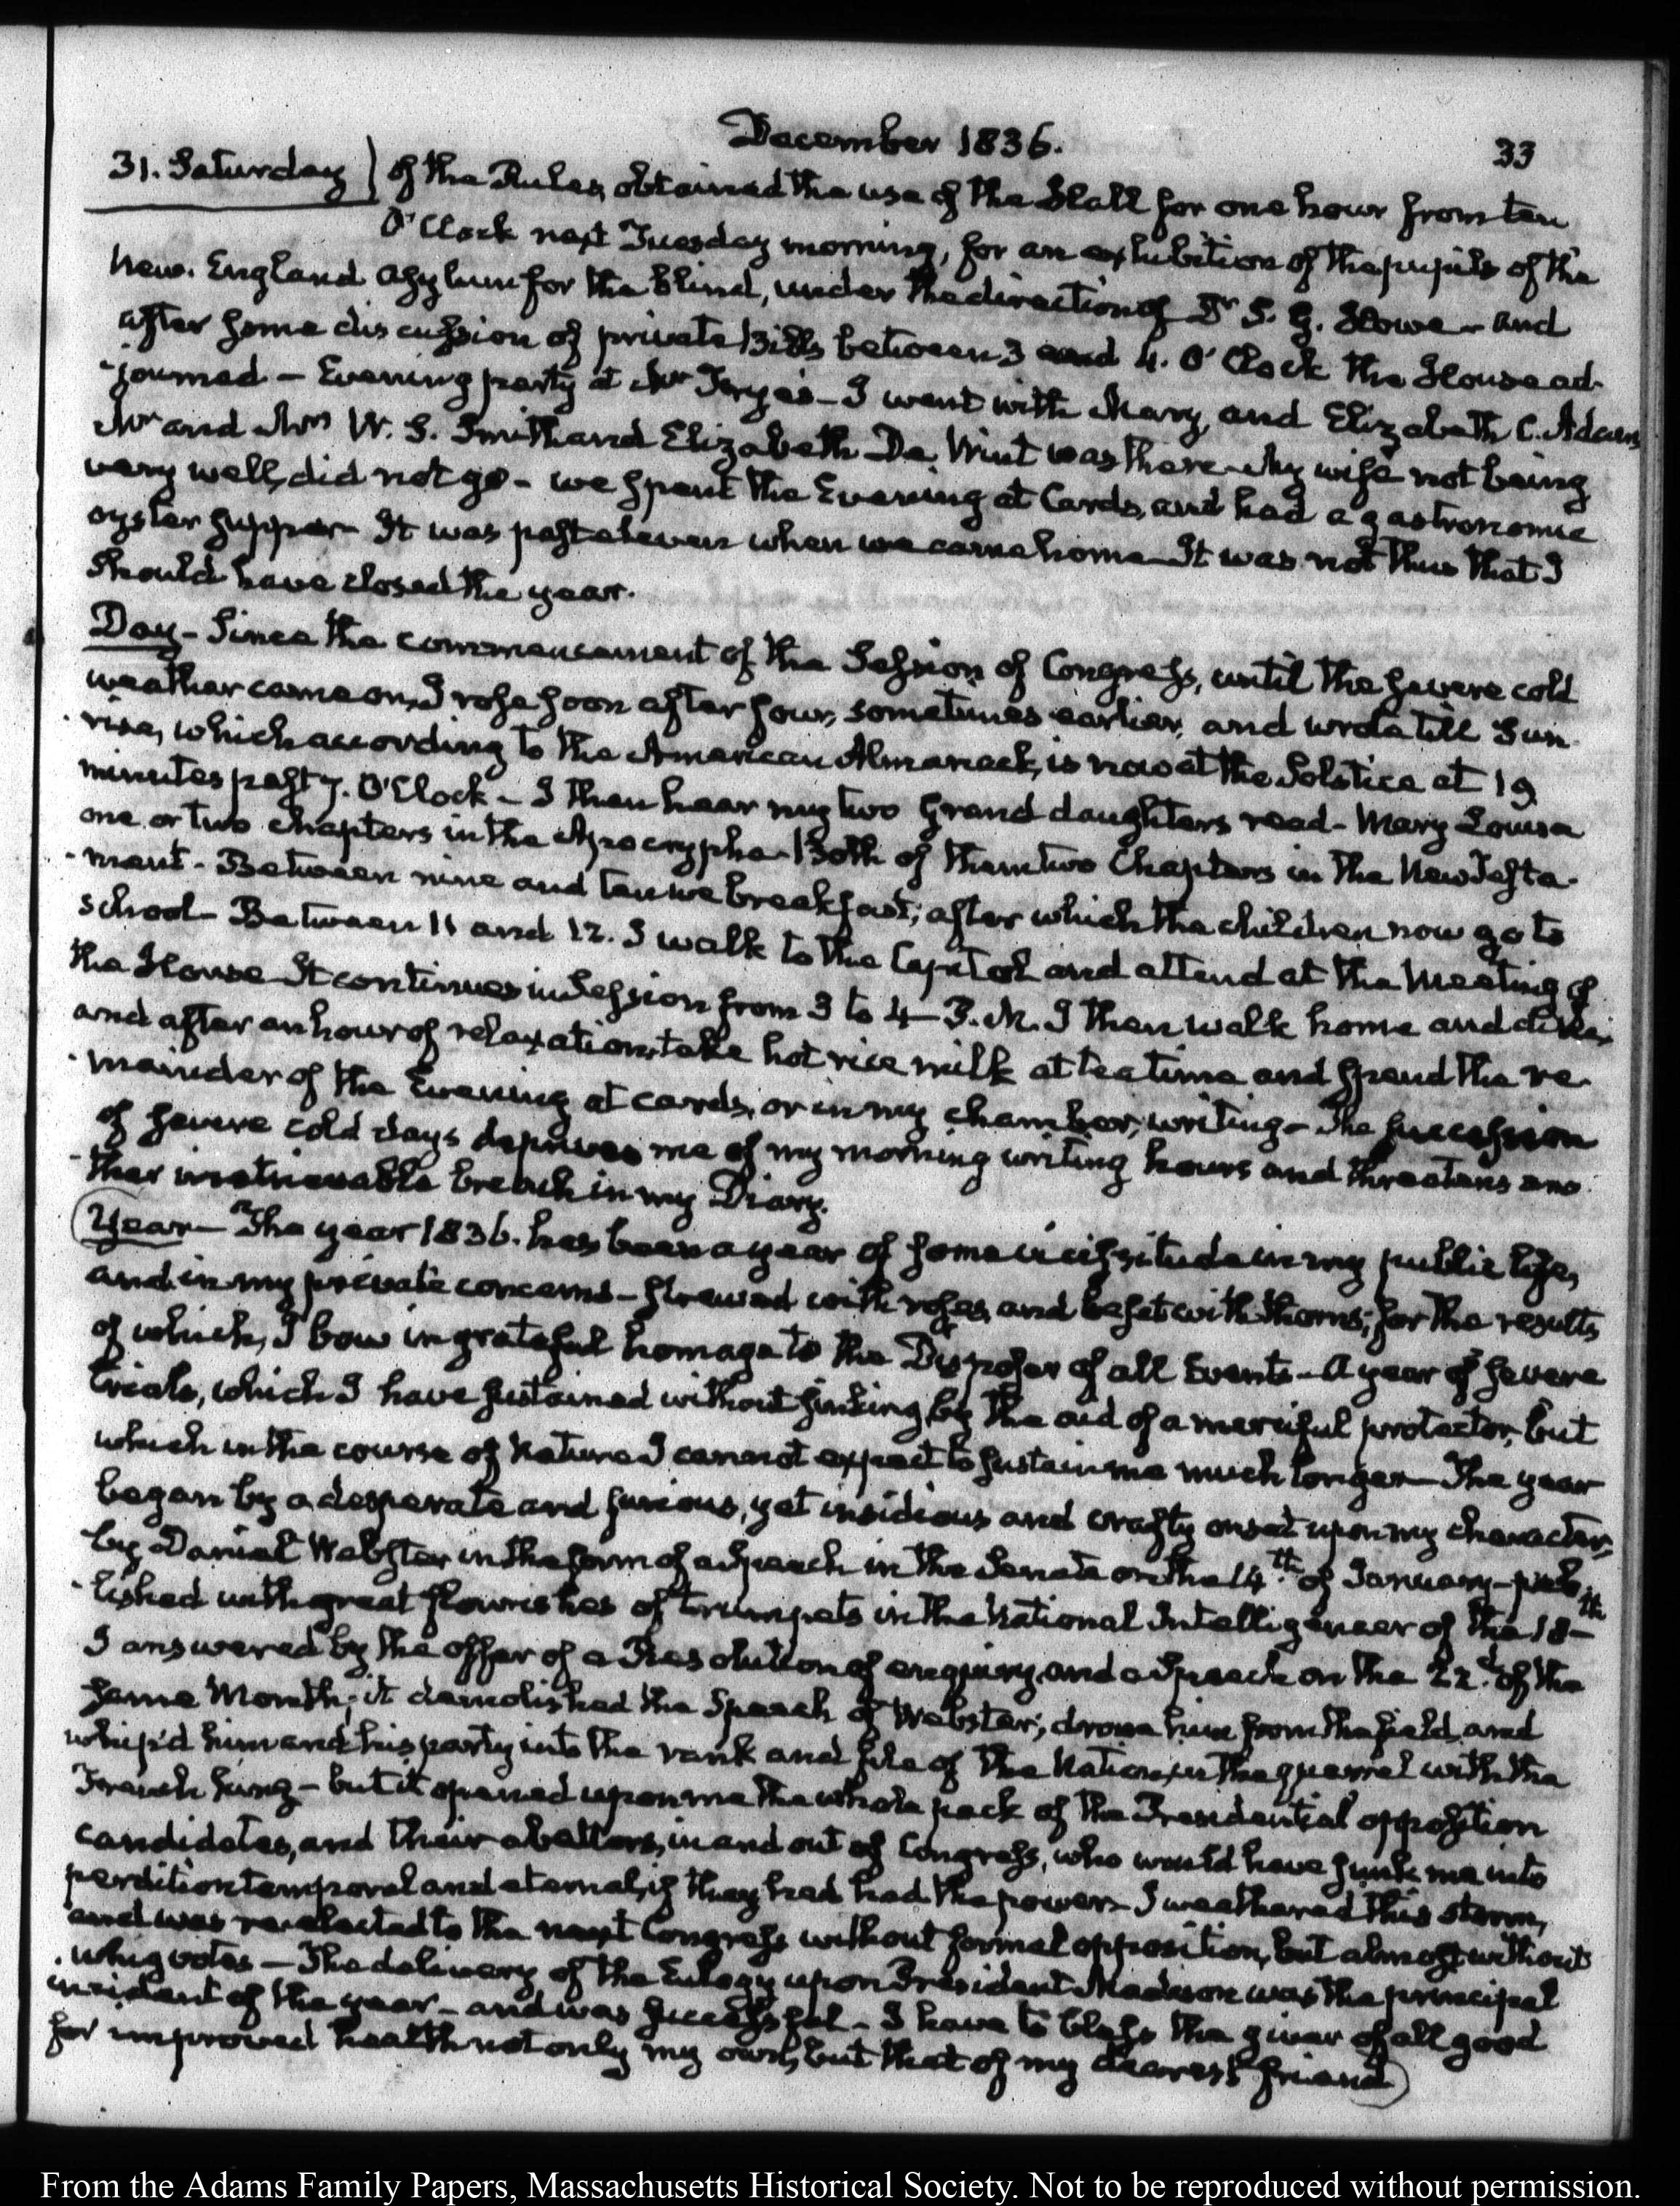 December 1836.
33
31. Saturday } of the Rules, obtained the use of the Hall for one hour from ten
O'Clock next Tuesday morning, for an exhibition of the pupils of the
New England Asylum for the Blind, under the direction of Dr S. G. Howe - and
after some discussion of private Bills, between 3 and 4. O'Clock the House ad-
-journed - Evening party at Mr Frye's - I went with Mary, and Elizabeth C. Adams
Mr and Mrs W. S. Smith and Elizabeth De Wint was there - My wife not being
very well, did not go - we spent the Evening at Cards, and had a gastronomic
oyster supper - It was past eleven when we came home - It was not thus that I
should have closed the year.
Day - Since the commencement of the Session of Congress, until the severe cold
weather came on, I rose soon after four, sometimes earlier, and wrote till Sun-
-rise, which according to the American Almanack, is now at the Solstice at 19
minutes past 7. O'Clock - I then hear my two Grand daughters read - Mary Louisa
one or two chapters in the Apocrypha - Both of them two Chapters in the New Testa-
-ment - Between nine and ten we breakfast; after which the children now go to
school - Between 11 and 12. I walk to the Capitol and attend at the meeting of
the House - It continues in Session from 3 to 4 - P.M. I then walk home and dine,
and after an hour of relaxation, take hot rice milk at tea time and spend the re-
-mainder of the Evening at cards, or in my chamber, writing - The succession
of severe cold days deprives me of my morning writing hours and threatens ano-
-ther irretrievable breach in my Diary.
(Year - The year 1836. has been a year of some vicissitude in my public life,
and in my private concerns - strewed with roses, and beset with thorns; for the results
of which, I bow in grateful homage to the Disposer of all Events - A year of severe
trials, which I have sustained without sinking by the aid of a merciful protector, but
which in the course of Nature I cannot expect to sustain me much longer - The year
began by a desperate and furious, yet insidious and crafty onset upon my character,
by Daniel Webster in the form of a Speech in the Senate on the 14th. of January - pub-
-lished with great flourishes of trumpets in the National Intelligencer of the 18th -
I answered by the offer of a Resolution of enquiry, and a Speech on the 22d. of the
same Month; it demolished the Speech of Webster; drove him from the field, and
whip'd him and his party into the rank and file of the Nation, in the quarrel with the
French King - but it opened upon me the whole pack of the Presidential opposition
candidates, and their abettors, in and out of Congress, who would have sunk me into
perdition temporal and eternal, if they had had the power - I weathered this storm,
and was re-elected to the next Congress without formal opposition, but almost without
whig votes - The delivery of the Eulogy upon President Madison was the principal
incident of the year - and was successful - I have to bless the giver of all good
for improved health not only my own, but that of my dearest friend)
From the Adams Family Papers, Massachusetts Historical Society. Not to be reproduced without permission.